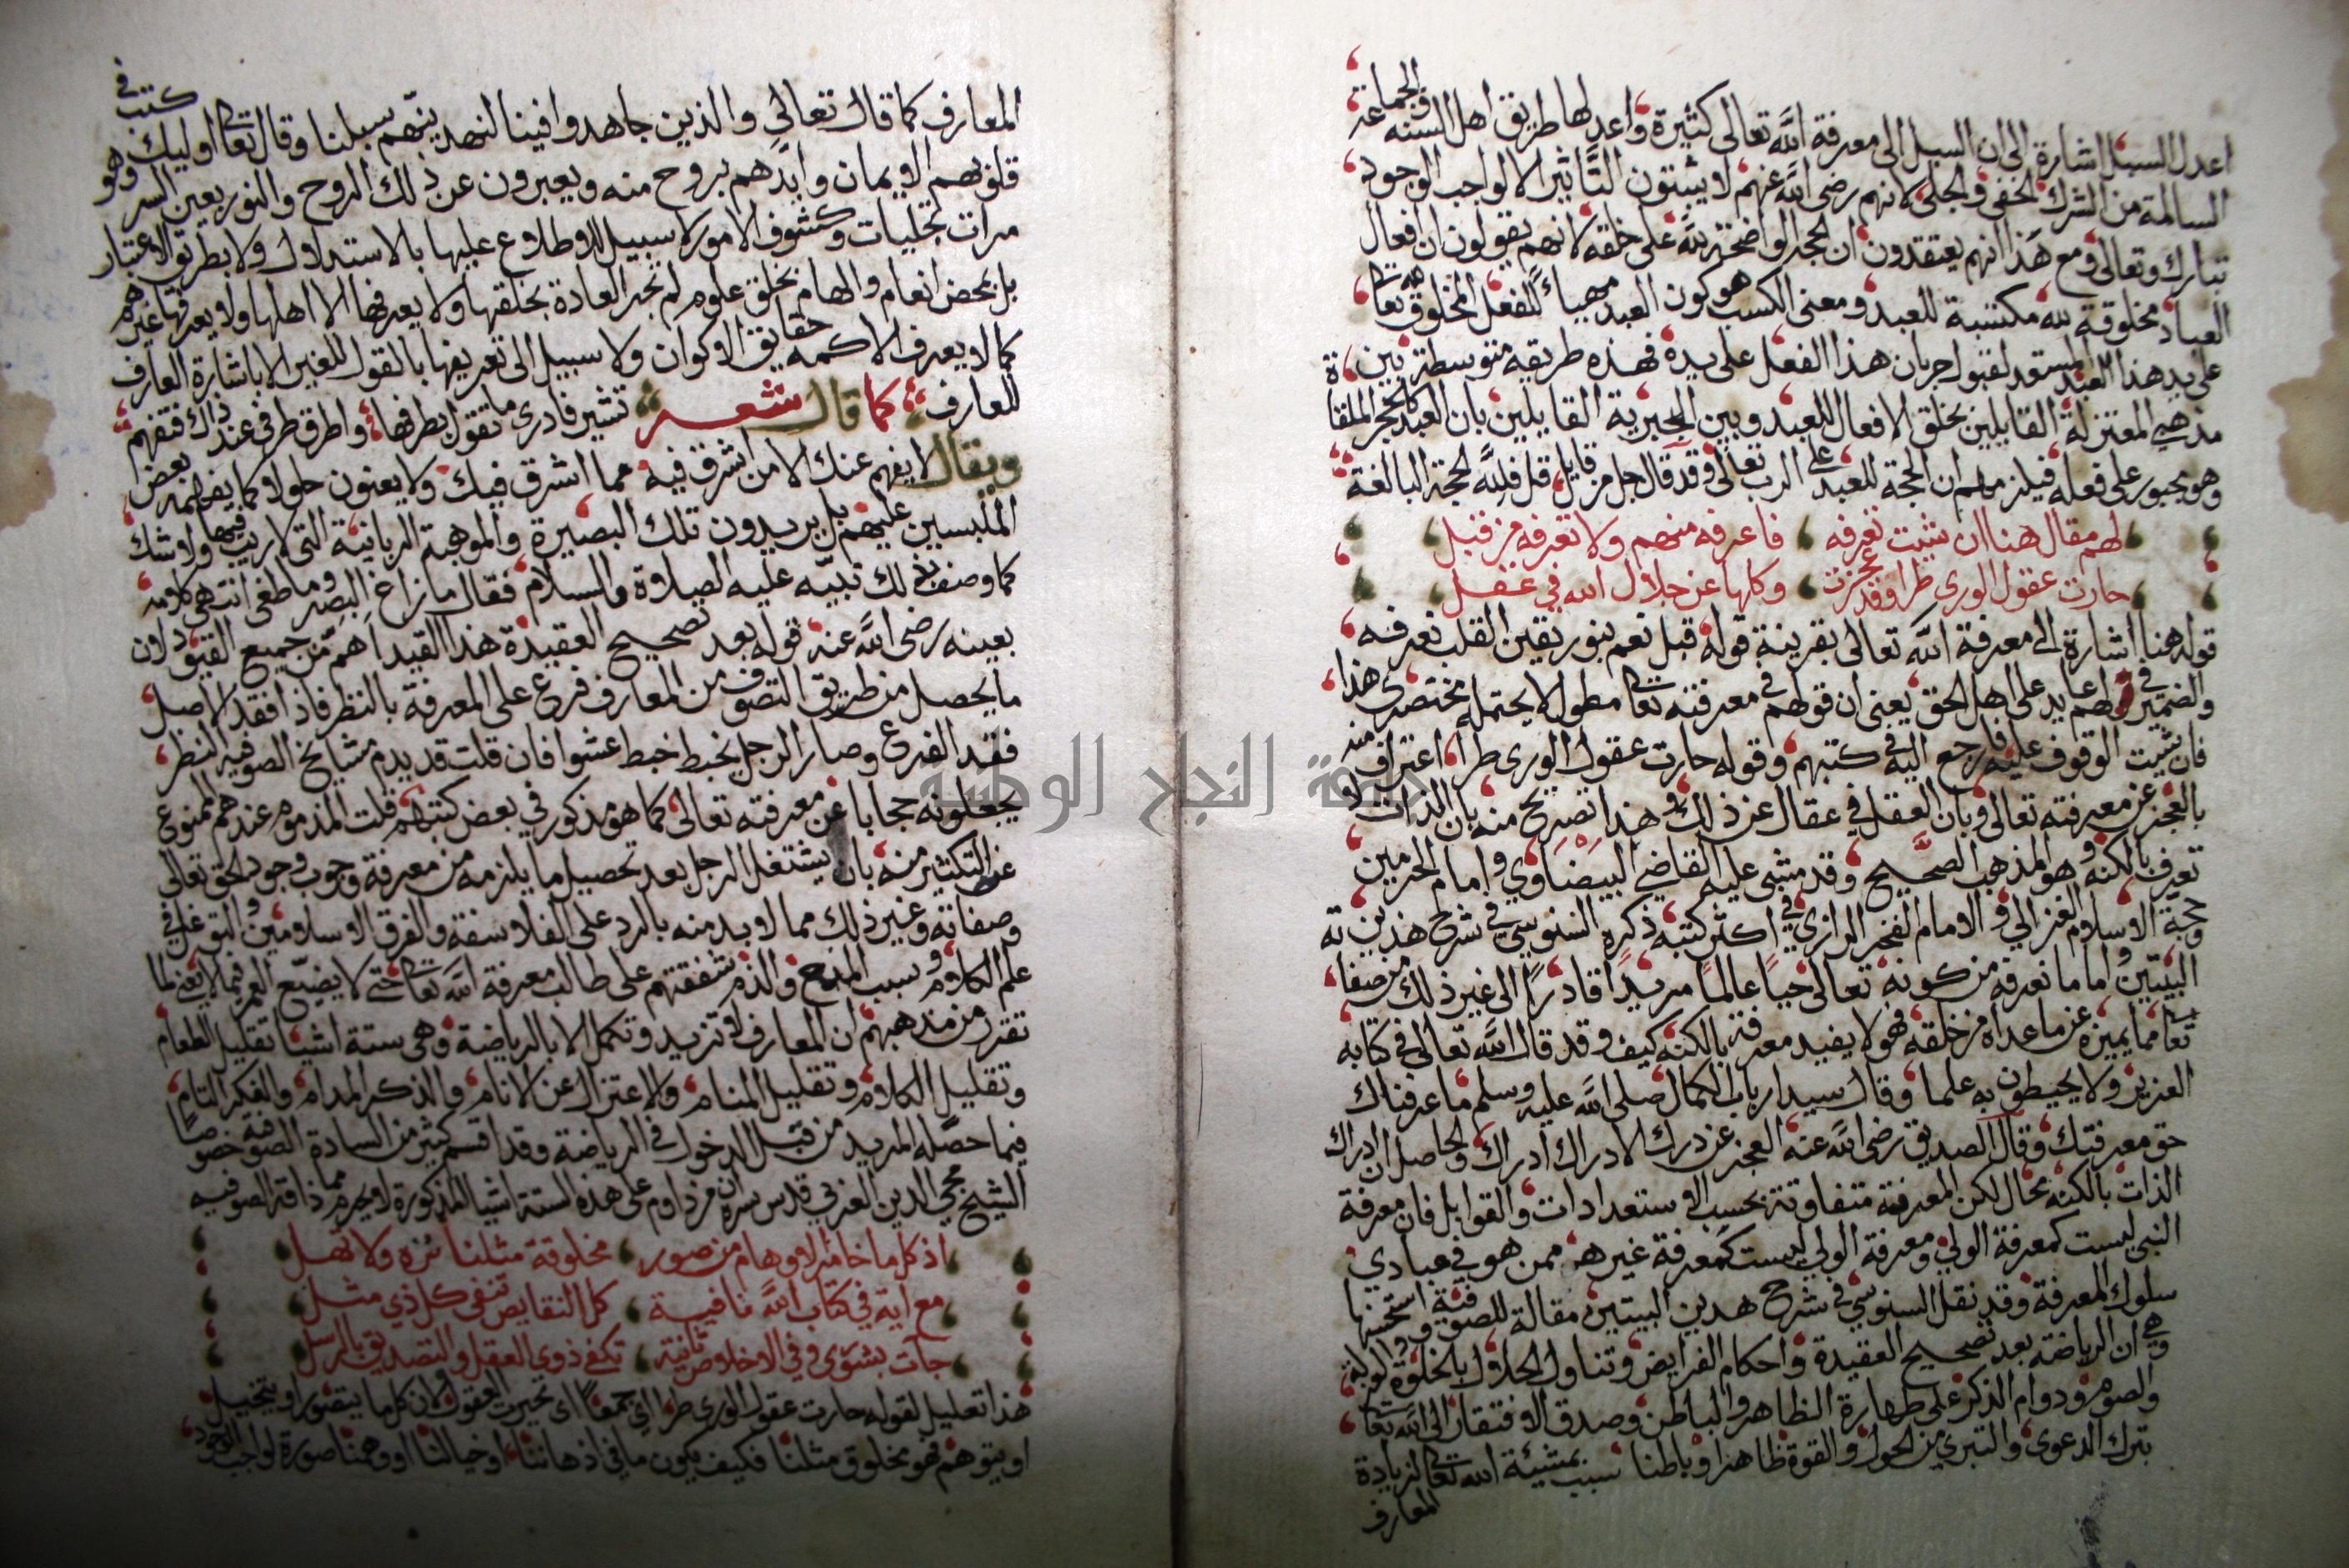 اعدل السبيل اشارة الى ان السبل الى معرفة الله تعالى كثيرة واعدلها طريق اهل السنه والجماعة
السالمة من الشرك الخفي والجلي لانهم رضي الله عنهم لا يثبتون التأثير الا لواجب الوجود
تبارك وتعالى ومع هذا انهم يعتقدون ان الحجة الواضحة لله على خلقه لانهم يقولون ان افعال
العباد مخلوقة لله مكتسبة للعبد ومعنى الكسب هو كون العبد مهيأ للفعل المخلوق لله تعا
على يد هذا العبد المستعد لقبول جريان هذا الفعل على يده فهذه طريقة متوسطة بين
مذهبي المعتزلة القايلين بخلق الافعال للعبد وبين الجبرية القايلين بان العبد كالحجر الملقاة
وهو مجبور على فعله فيلزمهم ان الحجة للعبد على الرب تعالى وقد قال جل من قايل قل فلله الحجة البالغة
لهم مقال هنا ان شيت تعرفه فاعرفه منهم ولا تعرفه من قبل
حارت عقول الورى طرا وقد عجزت وكلها عن جلال الله في عقل
قوله هنا اشارة الى معرفة الله تعالى بقرينة قوله قبل نعم بنور يقين القلب تعرفه
والضمير في لهم عايد على اهل الحق يعني ان قولهم في معرفته تعا مطول لا يحتمله مختصري هذا
فان شيت الوقوف عليه فارجع اليه في كتبهم وقوله حارت عقول الورى طرا اعتراف منه
بالعجز عن معرفته تعالى وبان العقل في عقال عن ذلك وفي هذا تصريح منه بان الذات لا
تعرف بالكنه وهو المذهب الصحيح وقد مشى عليه القاضي البيضاوي وامام الحرمين
وحجة الاسلام الغزالي والامام الفخر الرازي في اكثر كتبه ذكره السنوسي في شرح هذين
البيتين واما ما نعرفه من كونه تعالى حيا عالما مريدا قادرا الى غير ذلك من صفاته
تعا مما يميزه عن ما عداه من خلقه فهو لا يفيد معرفته بالكنه كيف وقد قال الله تعالى في كتابه
العزيز ولا يحيطون به علما وقال سيد ارباب الكمال صلى الله عليه وسلم ما عرفناك
حق معرفتك وقال الصديق رضي الله عنه العجز عن درك الادراك ادراك والحاصل ان ادراك
الذات بالكنه محال لكن المعرفة متفاوتة بحسب الاستعدادات والقوابل فان معرفة
النبي ليست كمعرفة الولي ومعرفة الولي ليست كمعرفة غيره ممن هو في مبادي
سلوك المعرفة وقد نقل السنوسي في شرح هذين البيتين مقالة للصوفية واستحسنها
وهي ان الرياضة بعد تصحيح العقيدة واحكام الفرايض وتناول الحلال بالخلوة
والصوم ودوام الذكر على طهارة الظاهر والباطن وصدق الافتقار الى الله تعا
بترك الدعوى والتبري من الحول والقوة ظاهرا وباطنا سبب بمشيئة الله تعا لزيادة
المعارف
المعارف كما قال تعالى والذين جاهدوا فينا لنهدينهم سبلنا وقال تعا اوليك كتب في
قلوبهم الايمان وايدهم بروح منه ويعبرون عن ذلك الروح والنور بعين السر وهو
مرات تجليات وكشوف الامور لا سبيل للاطلاع عليها بالاستدلال ولا بطريق الاعتبار
بل بمحض انعام والهام بخلق علوم لم تجر العادة بخلقها ولا يعرفها الا اهلها ولا يعرفها غيرهم
كما لا يعرف الاكمه حقايق الاكوان ولا سبيل الى تعريفها بالقول للغير الا باشارة العارف
للعارف كما قال شعر تشير فادري ما تقول بطرفها واطرق طرفي عند ذاك فتفهم
ويقال لا يفهم عنك الا من اشرق فيه مما اشرق فيك ولا يعنون حلولا كما يفهمه بعض
الملبسين عليهم بل يريدون تلك البصيرة والموهبة الربانية التي لا ريب فيها ولا شك
كما وصف بذلك نبيه عليه الصلاة والسلام فقال ما زاغ البصر وما طغى انتهى كلامه
بعينه رضي الله عنه قوله بعد تصحيح العقيدة هذا القيد اهم من جميع القيود لان
ما يحصل من طريق التصوف من المعارف فرع على المعرفة بالنظر فاذا فقد الاصل
فقد الفرع وصار الرجل يخبط خبط عشوا فان قلت قد يذم مشايخ الصوفيه النظر
يجعلونه حجابا عن معرفته تعالى كما هو مذكور في بعض كتبهم قلت المذموم عندهم الممنوع
عنه التكثير منه بان يشتغل الرجل بعد تحصيل ما يلزمه من معرفة وجوب وجود الحق تعالى
وصفاته وغير ذلك مما لا بد منه بالرد على الفلاسفة والفرق الاسلامين والتوغل في
علم الكلام وسبب المنع والذم شفقتهم على طالب معرفة الله تعا حتى لا يضيع العمر فيما لا يعني لما
تقرر من مذهبهم ان المعارف لا تزيد وتكمل الا بالرياضة وهي ستة اشيا تقليل الطعام
وتقليل الكلام وتقليل المنام والاعتزال عن الانام والذكر المدام والفكر التام
فيما حصله المريد من قبل الدخول في الرياضة وقد اقسم كثير من السادة الصوفيه خصوصا
الشيخ محي الدين العربي قدس سره ان من داوم على هذه الستة اشيا المذكورة لا يحرم مما ذاقه الصوفيه
اذ كل ما خامر الاوهام من صور مخلوقة مثلنا نزه ولا تهل
مع اية في كتاب الله نافية كل النقايص تنفي كل ذي مثل
جآت بشورى وفي الاخلاص ثانية تكفي ذوي العقل والتصديق بالرسل
هذا تعليل لقوله حارت عقول الورى طرا اي جمعا اي تحيرت العقول لان كل ما يتصور او يتخيل
او يتوهم فهو مخلوق مثلنا فكيف يكون ما في اذهاننا او خيالنا او وهمنا صورة لواجب الوجود
جامعة النجاح الوطنية